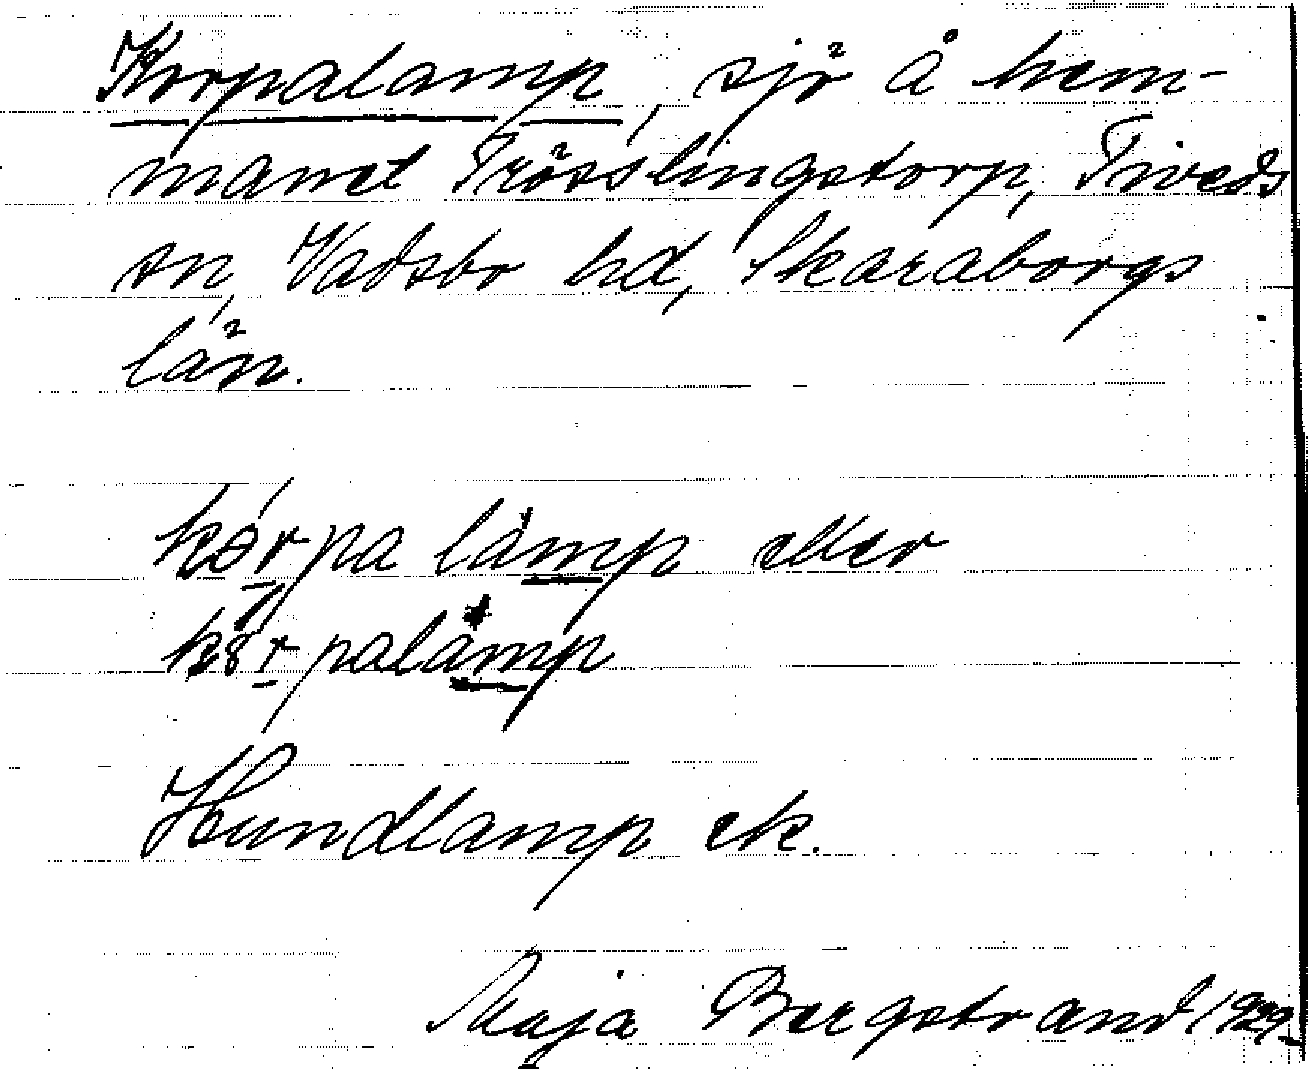 Korpalamp, sjö å hem-
manet Trösslingstorp, Tiveds
sn, Vadsbo hd, Skaraborgs
län.
kórpa låmp eller
palåmp
Hundlamp ek.
Maja Bergstrand 1929.